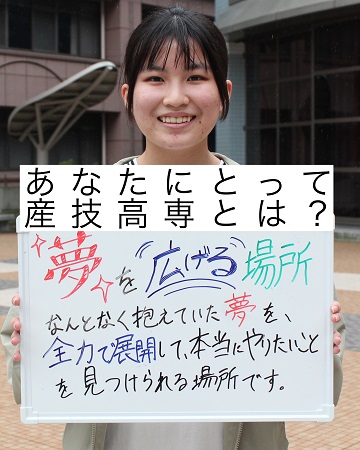 あなたにとって
産技高専とは？
夢を"広げる"場所
なんとなく抱えていた夢を、
全力で展開して、本当にやりたいこと
を見つけられる場所です。